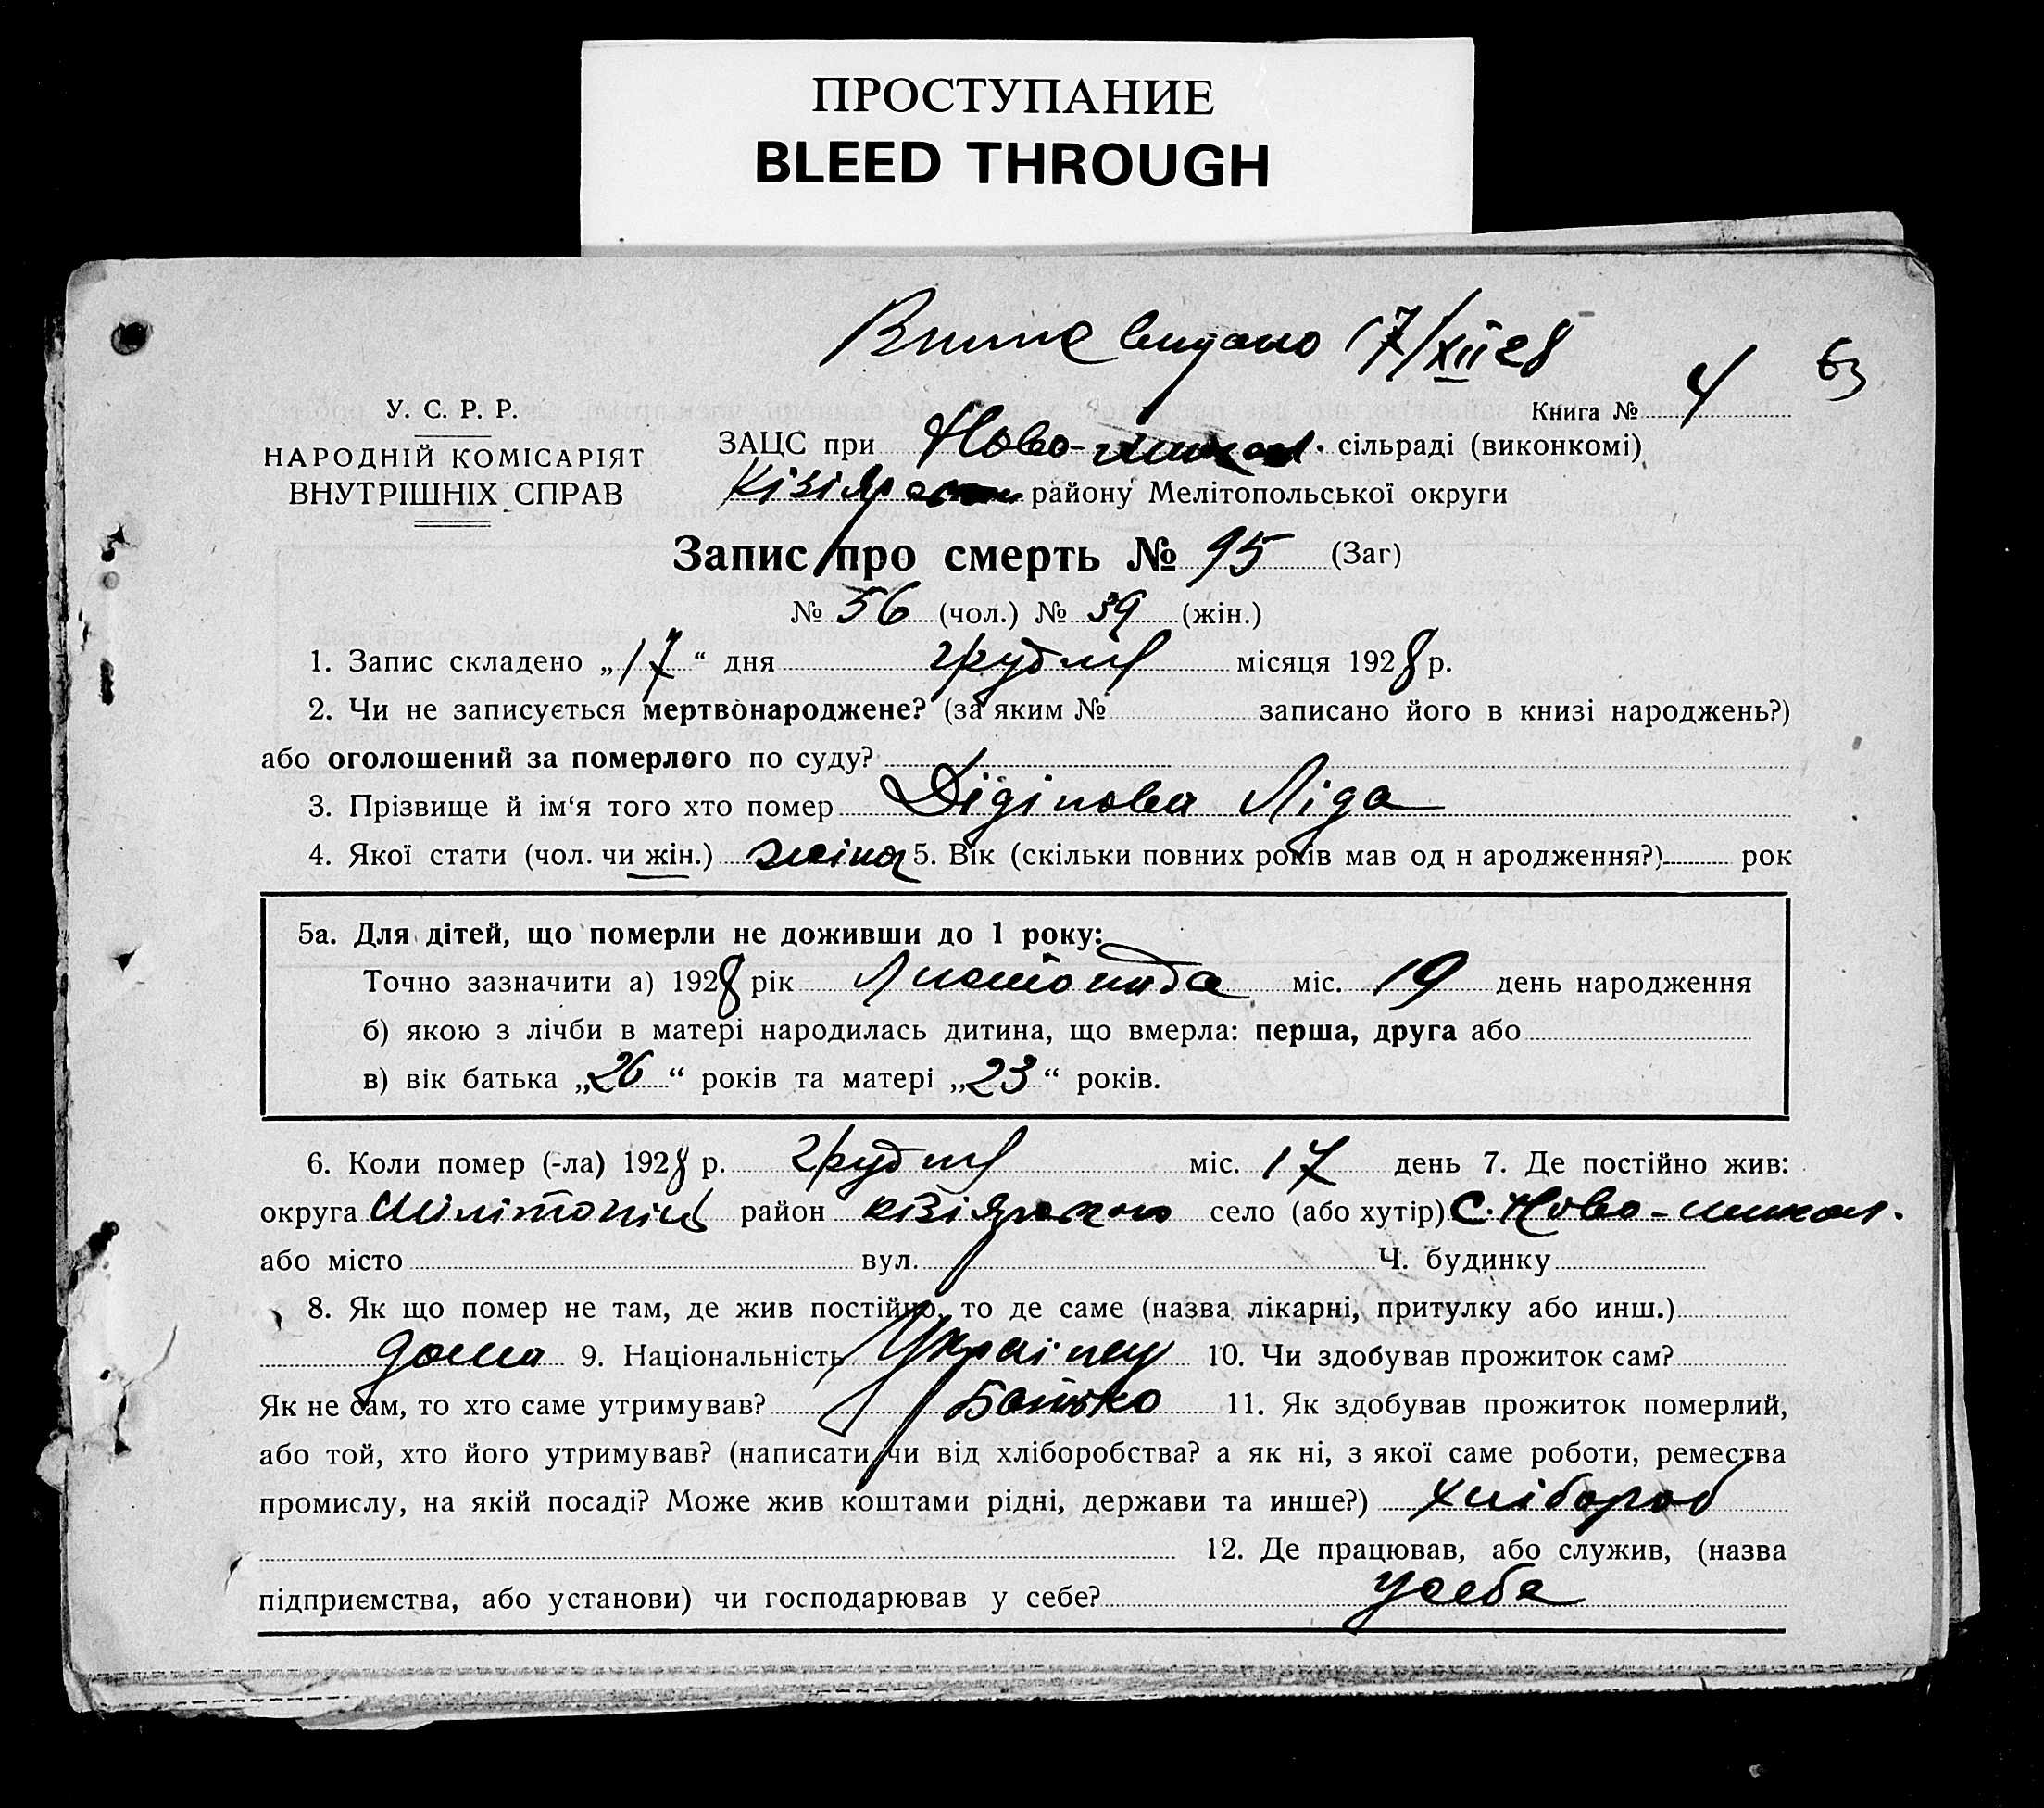 ПРОСТУПАНИЕ
BLEED THROUGH
Випис видано 17/XII 28
63
У. С. Р. Р.
Книга № 4
НАРОДНІЙ КОМІСАРІЯТ
ВНУТРІШНІХ СПРАВ
ЗАЦС при Ново-микол. сільраді (виконкомі)
Кізіярськ району Мелітопольської округи
Запис про смерть № 95 (Заг)
№ 56 (чол.) № 39 (жін.)
1. Запис складено „17“ дня грудня місяця 1928 р.
2. Чи не записується мертвонароджене? (за яким № записано його в книзі народжень?)
або оголошений за померлого по суду?
3. Прізвище й ім‘я того хто помер Дідінова Ліда
4. Якої стати (чол. чи жін.) жіноч 5. Вік (скільки повних років мав од н ародження?) рок
5а. Для дітей, що померли не доживши до 1 року:
Точно зазначити а) 1928 рік Листопада міс. 19 день народження
б) якою з лічби в матері народилась дитина, що вмерла: перша, друга або
в) вік батька „26“ років та матері „23“ років.
6. Коли помер (-ла) 1928 р. грудня міс. 17 день 7. Де постійно жив:
округа Мелітопіль район кізіярського село (або хутір) с. Ново-микол.
або місто вул. Ч. будинку
8. Як що помер не там, де жив постійно, то де саме (назва лікарні, притулку або инш.)
дома 9. Національність Украінец 10. Чи здобував прожиток сам?
Як не сам, то хто саме утримував? Батько 11. Як здобував прожиток померлий,
або той, хто його утримував? (написати чи від хліборобства? а як ні, з якої саме роботи, ремества
промислу, на якій посаді? Може жив коштами рідні, держави та инше?) хлібороб
12. Де працював, або служив, (назва
підприємства, або установи) чи господарював у себе? усебе